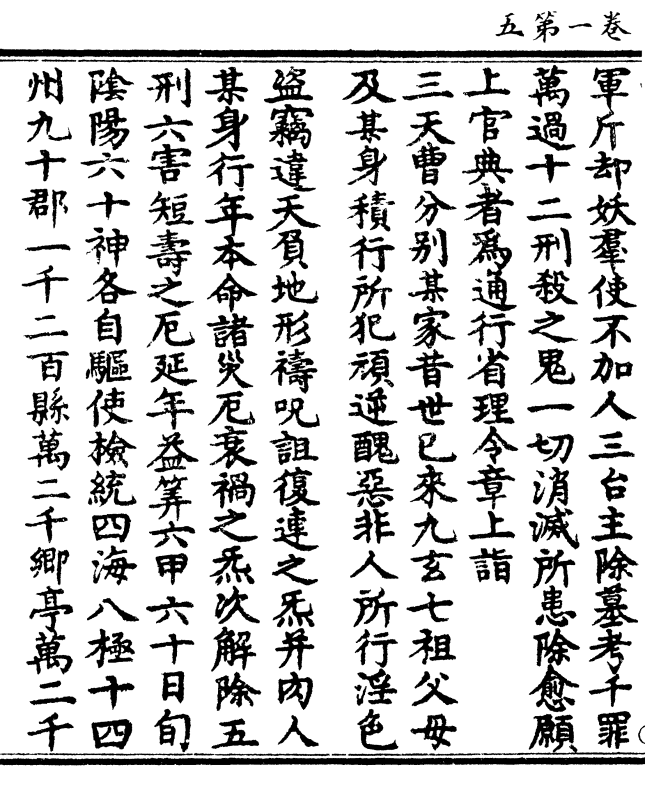 卷一第五
軍斤却妖羣使不加人三台主除墓考千罪
萬過十二刑殺之鬼一切消滅所患除愈願
上官典者爲通行省理令章上詣
三天曹分别某家昔世已來九玄七祖父母
及某身積行所犯頑逆醜惡非人所行淫色
盜竊違天負地形禱呪詛復連之炁并內人
某身行年本命諸災厄衰禍之炁次解除五
刑六害短壽之厄延年益筭六甲六十日旬
陰陽六十神各自驅使檢統四海八極十四
州九十郡一千二百縣萬二千鄉亭萬二千